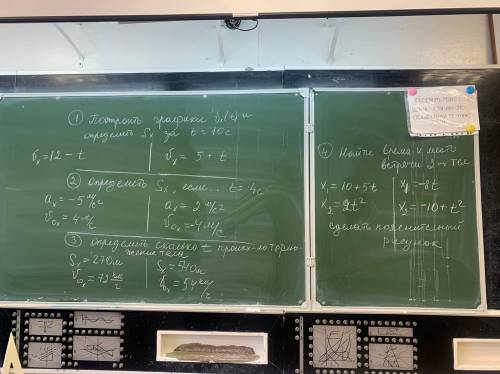 ① Построить графики υₓ(t) и
определить Sₓ за t = 10с
υₓ = 12 - t | υₓ = 5 + t
② определить Sₓ, если... t = 4с
aₓ = -5 м/с² | aₓ = 2 м/с²
υ₀ₓ = 4 м/с | υ₀ₓ = -4 м/с
③ определить сколько t происх-ло тормо-
жение тела
Sₓ = 270м | Sₓ = 540м
υ₀ₓ = 72 км/ч | υ₀ₓ = 54 км/ч
④ Найти время и место
встречи 2-х тел
x₁ = 10 + 5t | x₁ = -8t
x₂ = 2t² | x₂ = -10 + t²
сделать пояснительной
рисунок